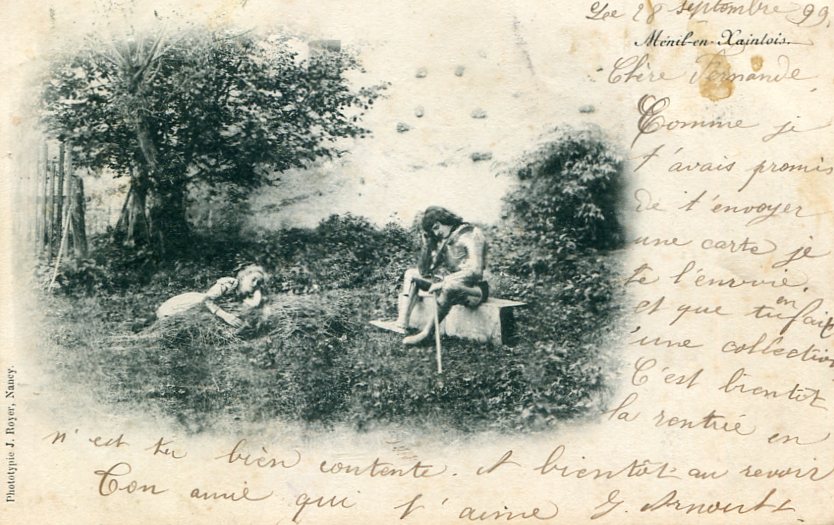 Le 28 septembre 99
Ménil-en-Xaintois.
Chère Fernande,
Comme je
t'avais promis
de t'envoyer
une carte je
te l'envoie.
et que tu en fais
une collection
C'est bientôt
la rentrée en
n'est tu bien contente. A bientôt au revoir
Ton amie qui t'aime J. Arnoult
Phototypie J. Royer, Nancy.